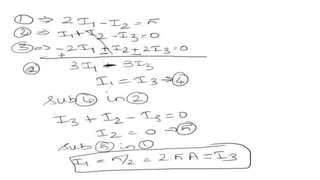 ① => 2I₁ - I₂ = 5
② => I₁ + I₂ - I₃ = 0
③ => -2I₁ + I₂ + 2I₃ = 0
② 3I₁ - 3I₃
I₁ = I₃ → ④
sub ④ in ②
I₃ + I₂ - I₃ = 0
I₂ = 0 → ⑤
sub ⑤ in ①
I₁ = 5/2 = 2.5 A = I₃